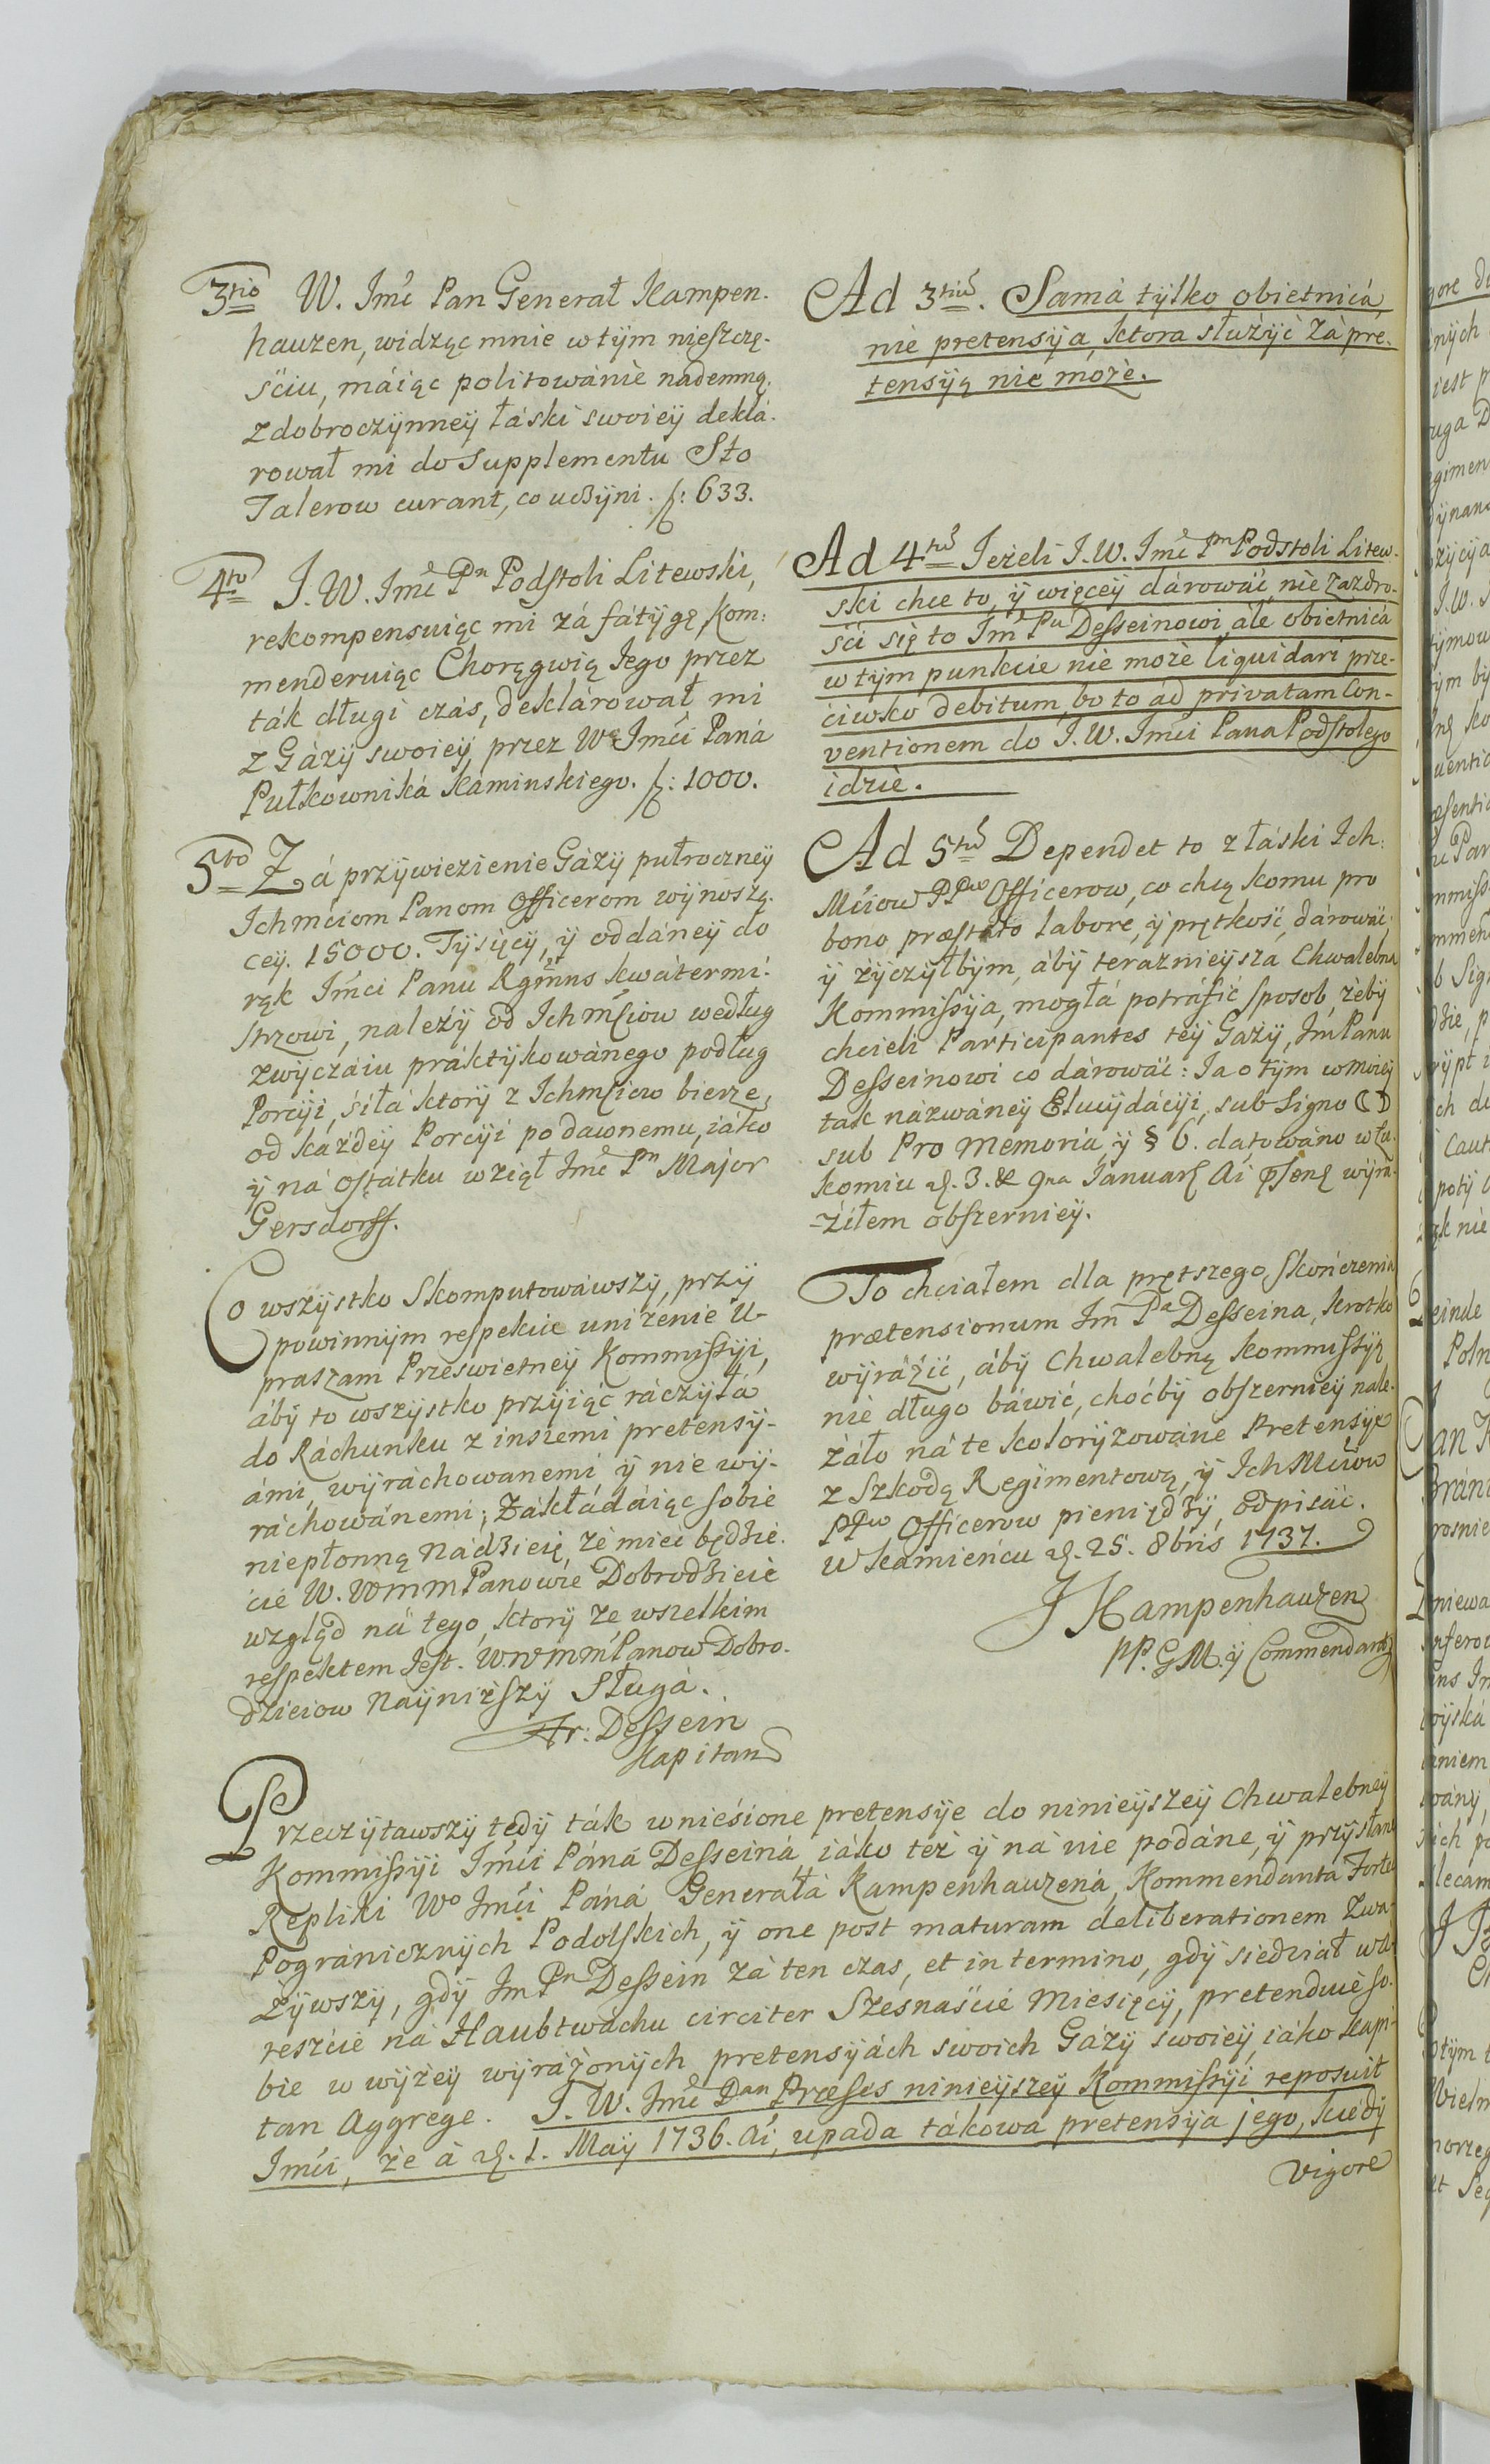 3tio W. Imć Pan Generał Kampen-
hauzen, widząc mnie w tÿm nieszczę-
ściu, máiąc politowánie nademną,
z dobroczÿnneÿ łáski swoieÿ deklá-
rował mi do Supplementu Sto
Talerow curant, co uczÿni. f: 633.
4to J. W. Imć Pn Podstoli Litewski,
rekompensuiąc mi zá fátÿgę, Kom:
menderuiąc Chorągwią Iego przez
ták długi czás, deklárował mi
z Gázÿ swoieÿ, przez Wo Imći Paná
Pułkowniká Káminskiego. f: 1000.
5to Zá przÿwiezienie Gázÿ pułroczneÿ
Ichmćiom Panom Officerom wÿnoszą-
ceÿ. 15000. Tÿsięcÿ, ÿ oddáneÿ do
rąk Imći Panu Rgmns Kwátermi-
strzowi, należÿ od Ichmćiow według
zwÿczáiu práktÿkowánego podług
Porcÿi, siłá ktorÿ z Ichmćiow bierze,
od káżdeÿ Porcÿi po dawnemu, iáko
ÿ ná ostátku wziął Imć Pn Major
Gersdorff.
Co wszÿstko Skomputowáwszÿ, przÿ
powinnÿm respekcie uniżenie U-
praszam Prześwietneÿ Kommissÿi,
ábÿ to wszÿstko przÿiąć ráczÿłá
do Ráchunku z insiemi pretensÿ-
ámi, wÿráchowanemi ÿ nie wÿ-
ráchowánemi; Zákłádáiąc sobie
niepłonną Nádzieię, że mieć będzie-
cie W. WMM Panowie Dobrodzieie
wzgląd ná tego, ktorÿ ze wszelkim
respektem Iest. W. WMM Panow Dobro-
dzieiow Naÿniższÿ Sługá.
Fr: Dessein
Kapitan
Ad 3tium. Samá tÿlko obietnicá,
nie pretensÿa, ktora służÿć zá pre-
tensÿą nie może.
Ad 4tum Ieżeli J. W. Imć Pn Podstoli Litew-
ski chce to, ÿ więceÿ dárowáć, nie zazdro-
ści się to Im Pu Desseinowi, ále obietnicá
w tÿm punkcie nie może liquidari prze-
ciwko debitum, bo to ád privatam Con-
ventionem do J. W. Imći Pana Podstolego
idzie.
Ad 5tum Dependet to z łáski Ich-
Mćiow PPw Officerow, co chcą komu pro
bono præstito labore, ÿ prętkość, dárowáć,
ÿ żÿczÿłbÿm, ábÿ teraznieÿsza Chwalebna
Kommissÿa, mogłá potráfić sposob, żebÿ
chcieli Participantes teÿ Gażÿ, Im Panu
Desseinowi co dárowáć: Ia o tÿm w moieÿ
tak názwáneÿ Elucÿdácÿi, sub Signo ☾☽
sub Pro Memoriá ÿ § 6. datowáno w Łu-
komiu d. 3. & 9na Ianuarÿ Ai præsen wÿrá-
ziłem obszernieÿ.
To chciałem dla prętszego skończenia
prætensionum Im Pa Desseina, krotko
wÿráźić, ábÿ Chwalebną Kommissÿą
nie długo báwić, choćbÿ obszernieÿ nale-
żáło ná te kolorÿzowáne Pretensÿe
z Szkodą Regimentową, ÿ Ich Mćiow
PPw Officerow pieniędzÿ, odpisáć.
w Kamieńcu d. 25. 8bris 1737.
J Kampenhauzen
PP. GM. ÿ Commendant
Przeczÿtawszÿ tedÿ ták wnieśione pretensÿe do ninieÿszeÿ Chwalebneÿ
Kommissÿi Imći Páná Desseiná iáko też ÿ ná nie podáne, ÿ przÿsłane
Repliki Wo Imći Páná Generałá Kampenhauzená, Kommendanta Fortec
Pogranicznÿch Podolskich, ÿ one post maturam deliberationem Zwa-
żÿwszÿ, gdÿ Im Pn Dessein zá ten czas, et in termino, gdÿ siedział w A-
reszcie ná Haubtwáchu circiter Szesnaście Miesięcÿ, pretenduie so-
bie w wÿżeÿ wÿráżonÿch pretensÿách swoich Gázÿ swoieÿ, iáko Kapi-
tan Aggrege. J. W. Imć Pan Præses ninieÿszeÿ Kommissÿi reposuit
Imći, że à d. 1. Maÿ 1736. Ai, upada tákowá pretensÿa jego, kiedÿ
vigore